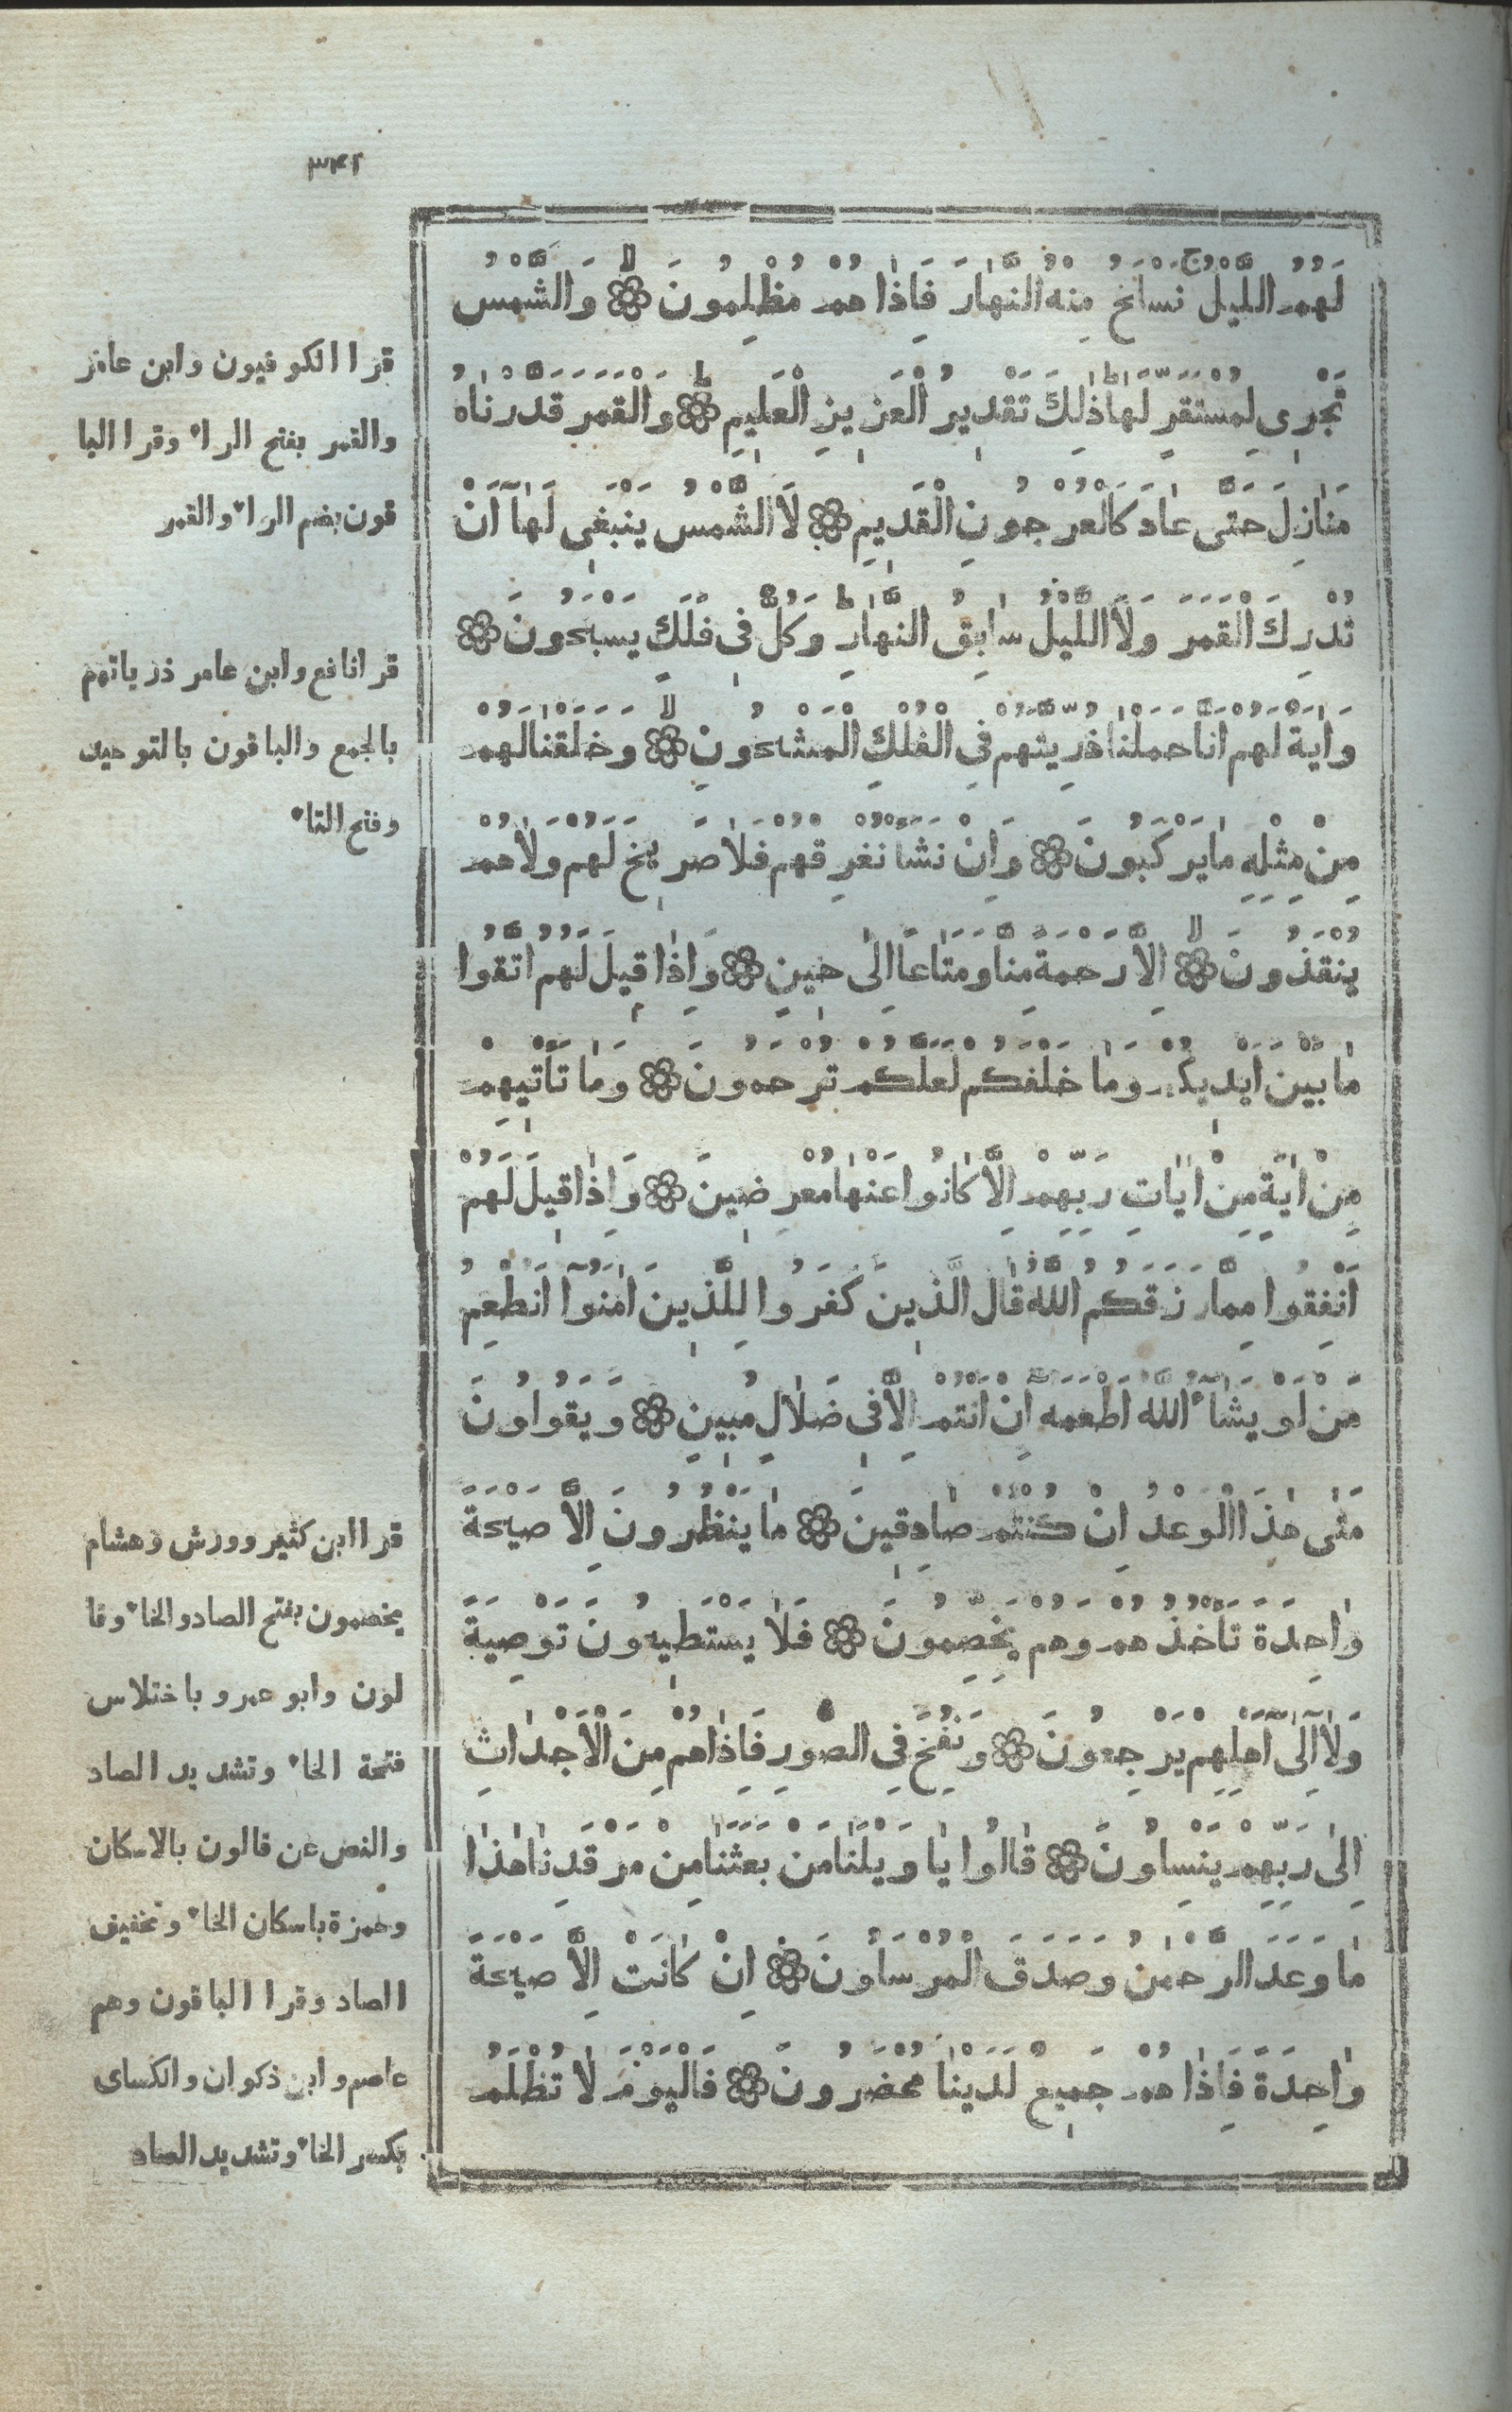 ٣٤٢
لَهُمُ الَّيْلُ نَسْلَخُ مِنْهُ النَّهَارَ فَاِذَا هُمْ مُظْلِمُونَ وَالشَّمْسُ
تَجْرِى لِمُسْتَقَرٍّ لَهَا ذٰلِكَ تَقْدِيرُ الْعَزِيزِ الْعَلِيمِ وَالْقَمَرَ قَدَّرْنَاهُ
مَنَازِلَ حَتَّى عَادَ كَالْعُرْجُونِ الْقَدِيمِ لَا الشَّمْسُ يَنْبَغِى لَهَآ اَنْ
تُدْرِكَ الْقَمَرَ وَلَا الَّيْلُ سَابِقُ النَّهَارِ وَكُلٌّ فِى فَلَكٍ يَسْبَحُونَ
وَاٰيَةٌ لَهُمْ اَنَّا حَمَلْنَا ذُرِّيَّتَهُمْ فِى الْفُلْكِ الْمَشْحُونِ وَخَلَقْنَا لَهُمْ
مِنْ مِثْلِهِ مَا يَرْكَبُونَ وَاِنْ نَشَأْ نُغْرِقْهُمْ فَلَا صَرِيخَ لَهُمْ وَلَا هُمْ
يُنْقَذُونَ اِلَّا رَحْمَةً مِنَّا وَمَتَاعًا اِلٰى حِينٍ وَاِذَا قِيلَ لَهُمُ اتَّقُوا
مَا بَيْنَ اَيْدِيكُمْ وَمَا خَلْفَكُمْ لَعَلَّكُمْ تُرْحَمُونَ وَمَا تَأْتِيهِمْ
مِنْ اٰيَةٍ مِنْ اٰيَاتِ رَبِّهِمْ اِلَّا كَانُوا عَنْهَا مُعْرِضِينَ وَاِذَا قِيلَ لَهُمْ
اَنْفِقُوا مِمَّا رَزَقَكُمُ اللّٰهُ قَالَ الَّذِينَ كَفَرُوا لِلَّذِينَ اٰمَنُوآ اَنُطْعِمُ
مَنْ لَوْ يَشَآءُ اللّٰهُ اَطْعَمَهُ اِنْ اَنْتُمْ اِلَّا فِى ضَلَالٍ مُبِينٍ وَيَقُولُونَ
مَتٰى هٰذَا الْوَعْدُ اِنْ كُنْتُمْ صَادِقِينَ مَا يَنْظُرُونَ اِلَّا صَيْحَةً
وَاحِدَةً تَأْخُذُهُمْ وَهُمْ يَخِصِّمُونَ فَلَا يَسْتَطِيعُونَ تَوْصِيَةً
وَلَآ اِلٰٓى اَهْلِهِمْ يَرْجِعُونَ وَنُفِخَ فِى الصُّورِ فَاِذَا هُمْ مِنَ الْاَجْدَاثِ
اِلٰى رَبِّهِمْ يَنْسِلُونَ قَالُوا يَا وَيْلَنَا مَنْ بَعَثَنَا مِنْ مَرْقَدِنَا هٰذَا
مَا وَعَدَ الرَّحْمٰنُ وَصَدَقَ الْمُرْسَلُونَ اِنْ كَانَتْ اِلَّا صَيْحَةً
وَاحِدَةً فَاِذَا هُمْ جَمِيعٌ لَدَيْنَا مُحْضَرُونَ فَالْيَوْمَ لَا تُظْلَمُ
قرا الكوفيون وابن عامر
والقمر بفتح الراء وقرا البا
قون بضم الراء والقمر
قرا نافع وابن عامر ذرياتهم
بالجمع والباقون بالتوحيد
وفتح التاء
قرا ابن كثير وورش وهشام
يخصمون بفتح الصاد والخاء وقا
لون وابو عمرو باختلاس
فتحة الخاء وتشديد الصاد
والنص عن قالون بالاسكان
وحمزة باسكان الخاء وتخفيف
الصاد وقرا الباقون وهم
عاصم وابن ذكوان والكساى
بكسر الخاء وتشديد الصاد